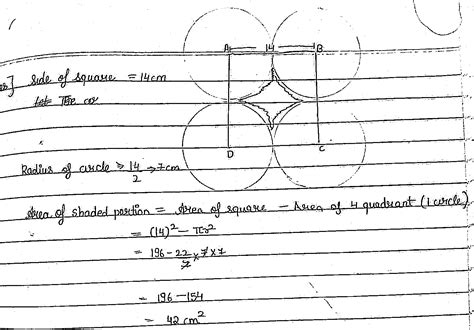 A 14 B
Side of square = 14cm
D C
Radius of circle ⇒ 14/2 ⇒ 7cm
Area of shaded portion = Area of square - Area of 4 quadrant (1 circle)
= (14)² - πr²
= 196 - 22/7 × 7 × 7
= 196 - 154
= 42 cm²